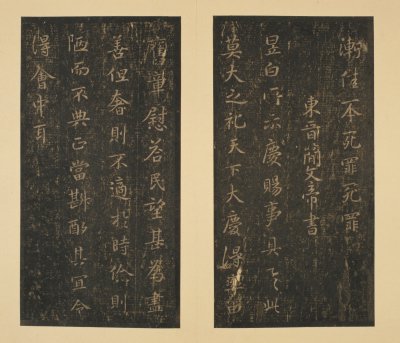 漸佳不死罪死罪
東晉簡文帝書
昱白所示慶賜事具之此
莫大之礼天下大慶
慰若民望其為盡
善但奢則不適於時儉則
陋而不典正當斟酌其宜令
得會中耳